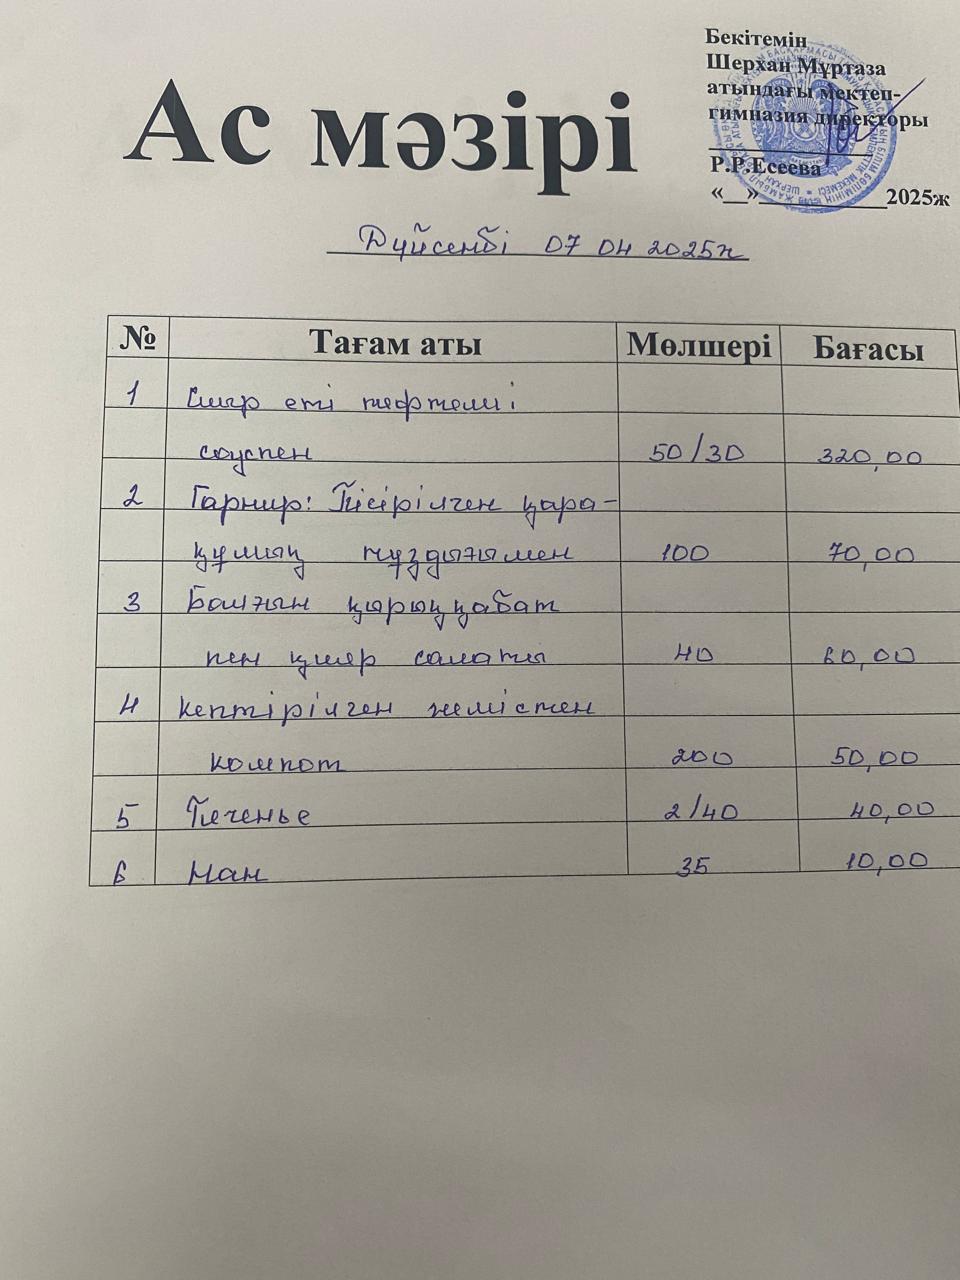 Бекітемін
Шерхан Мұртаза
атындағы мектеп-
гимназия директоры
Р.Р.Есеева
«__»____________2025ж
Ас мәзірі
Дүйсенбі 07 04 2025ж
№ Тағам аты Мөлшері Бағасы
1 Сиыр еті тефтелиі
соуспен 50/30 320,00
2 Гарнир: Пісірілген қара-
құмық тұздығымен 100 70,00
3 Балғын қырыққабат
пен қияр салаты 40 60,00
4 Кептірілген жемістен
компот 200 50,00
5 Печенье 2/40 40,00
6 Нан 35 10,00